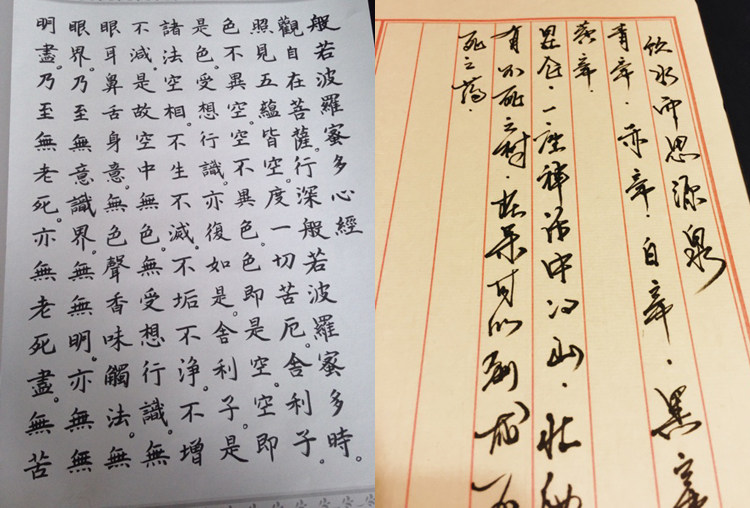 般若波羅蜜多心經
觀自在菩薩。行深般若波羅蜜多時。
照見五蘊皆空。度一切苦厄。舍利子。
色不異空。空不異色。色即是空。空即
是色。受想行識。亦復如是。舍利子。是
諸法空相。不生不滅。不垢不淨。不增
不減。是故空中無色。無受想行識。無
眼耳鼻舌身意。無色聲香味觸法。無
眼界。乃至無意識界。無無明。亦無無
明盡。乃至無老死。亦無老死盡。無苦
饮水而思源泉
青章．赤章．白章．黑章
黄章．
昆仑．一座神话中的山．
有不死之树．可以制成不
死之药．